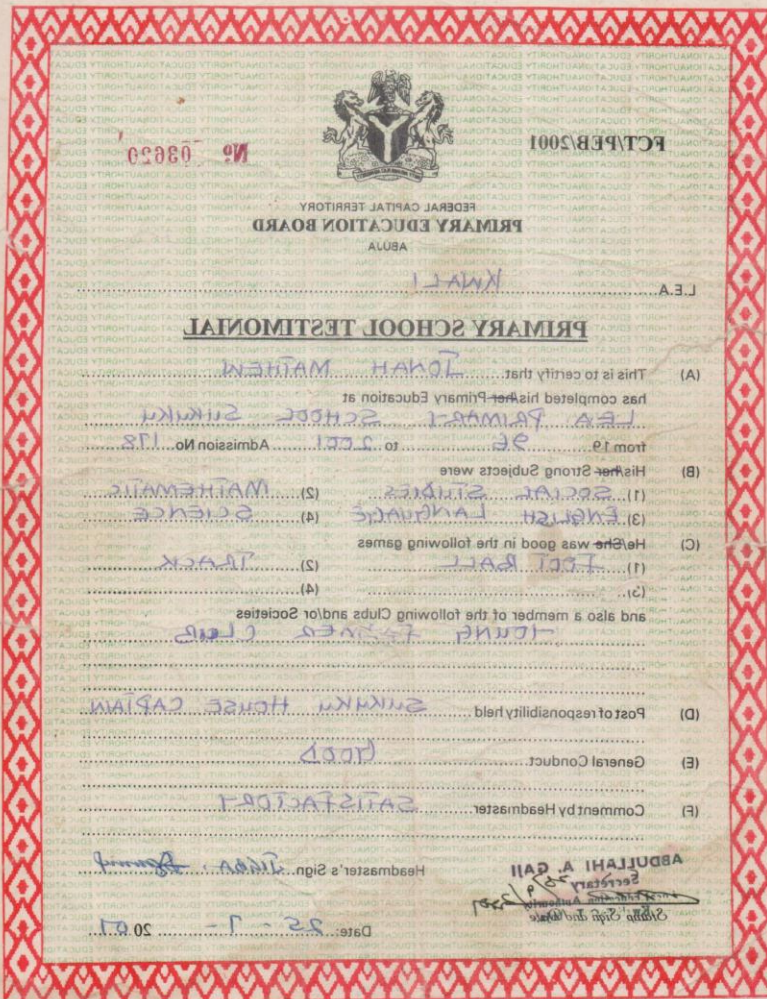 FCT/PEB/2001
Nº 03620
FEDERAL CAPITAL TERRITORY
PRIMARY EDUCATION BOARD
ABUJA
L.E.A. KWALI
PRIMARY SCHOOL TESTIMONIAL
(A) This is to certify that JONAH MATHEW
has completed his/her Primary Education at
LEA PRIMARY SCHOOL SUKUKU
from 19 96 to 2001 Admission No. 178
(B) His/her Strong Subjects were
(1) SOCIAL STUDIES (2) MATHEMATIC
(3) ENGLISH LANGUAGE (4) SCIENCE
(C) He/She was good in the following games
(1) FOOT BALL (2) TRACK
(3) (4)
and also a member of the following Clubs and/or Societies
YOUNG FARMER CLUB
(D) Post of responsibility held SUKUKU HOUSE CAPTAIN
(E) General Conduct GOOD
(F) Comment by Headmaster SATISFACTORY
ABDULLAHI A. GAJI
Secretary
Stamp Sign And Date
Headmaster's Sign. JIBBA.
Date: 25 - 7 - 20